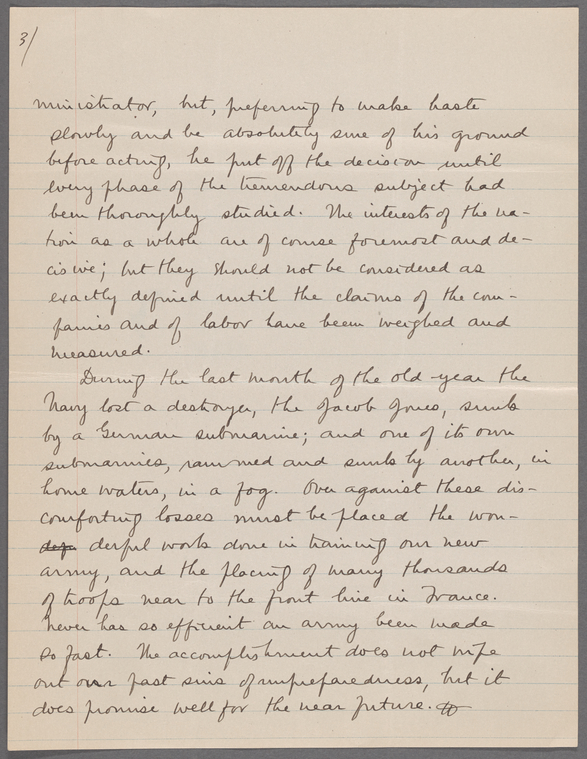 3/
ministrator, but, preferring to make haste
slowly and be absolutely sure of his ground
before acting, he put off the decision until
every phase of the tremendous subject had
been thoroughly studied. The interests of the na-
tion as a whole are of course foremost and de-
cisive; but they should not be considered as
exactly defined until the claims of the com-
panies and of labor have been weighed and
measured.
During the last month of the old year the
Navy lost a destroyer, the Jacob Jones, sunk
by a German submarine; and one of its own
submarines, rammed and sunk by another, in
home waters, in a fog. Over against these dis-
comforting losses must be placed the won-
derful work done in training our new
army, and the placing of many thousands
of troops near to the front line in France.
Never has so efficient an army been made
so fast. The accomplishment does not wipe
out our past sins of unpreparedness, but it
does promise well for the near future.